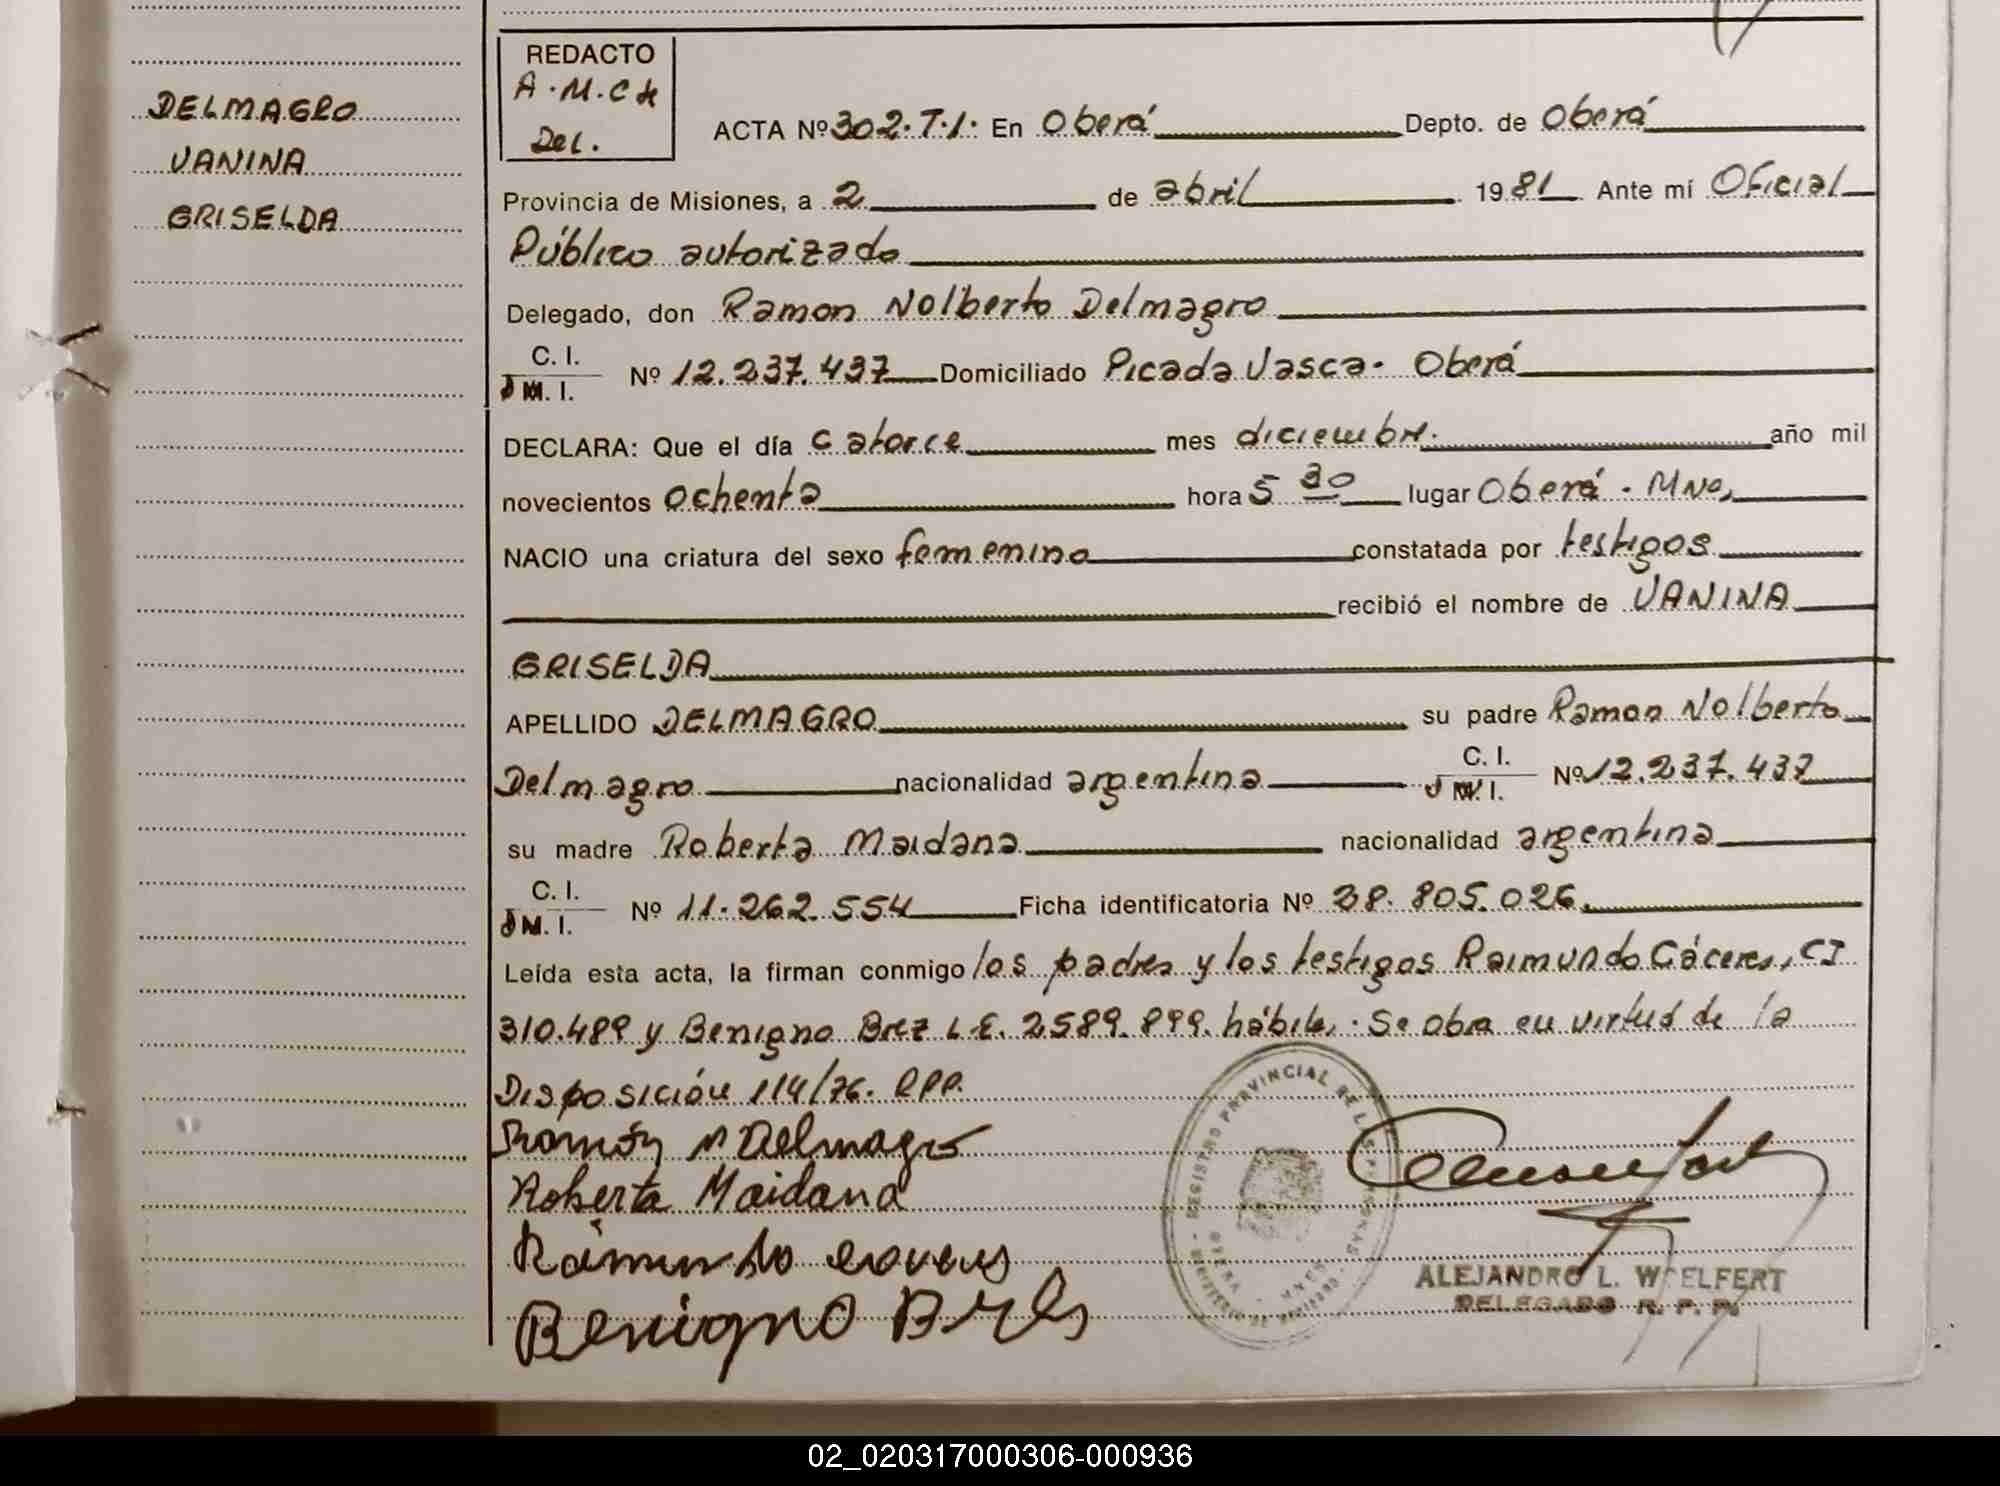 DELMAGRO
VANINA
GRISELDA
REDACTO
A.M.CH
Del.
ACTA Nº 302.T.I. En Oberá Depto. de Oberá
Provincia de Misiones, a 2 de abril 1981 Ante mí Oficial
Público autorizado
Delegado, don Ramon Nolberto Delmagro
C. I.
D M. I. Nº 12.237.437 Domiciliado Picada Vasca. Oberá
DECLARA: Que el día catorce mes diciembre. año mil
novecientos ochenta hora 5 30 lugar Oberá. Mnes,
NACIO una criatura del sexo femenino constatada por testigos
recibió el nombre de VANINA
GRISELDA
APELLIDO DELMAGRO su padre Ramon Nolberto
Delmagro nacionalidad argentina C. I. D M. I. Nº 12.237.437
su madre Roberta Maidana nacionalidad argentina
C. I.
D M. I. Nº 11.262.554 Ficha identificatoria Nº 28.805.026.
Leída esta acta, la firman conmigo los padres y los testigos Raimundo Cáceres, CI
310.489 y Benigno Brez L.E. 2589.899. hábiles. Se obra en virtud de la
Disposición 114/76. RPP.
Ramón N Delmagro
Roberta Maidana
Raimundo
Benigno
REGISTRO PROVINCIAL DE LAS PERSONAS
OBERA - MNES
MINISTERIO DE GOBIERNO
ALEJANDRO L. WOELFERT
DELEGADO R. P. P.
02_020317000306-000936